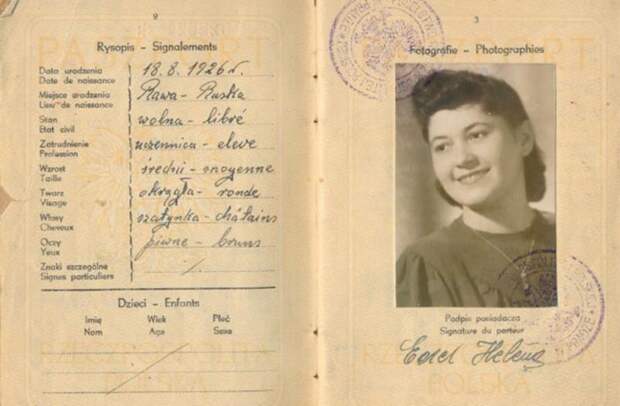 2
Rysopis - Signalements
Data urodzenia 18.8.1926 r.
Date de naissance
Miejsce urodzenia Rawa - Ruska
Lieu de naissance
Stan wolna - libré
Etat civil
Zatrudnienie uczennica - eleve
Profession
Wzrost średni - moyenne
Taille
Twarz okrągła - ronde
Visage
Włosy szatynka - châtains
Cheveux
Oczy piwne - bruns
Yeux
Znaki szczególne
Signes particuliers
Dzieci - Enfants
Imię Wiek Płeć
Nom Age Sexe
3
Fotografie - Photographies
Podpis posiadacza
Signature du porteur
Helena
POLSKA